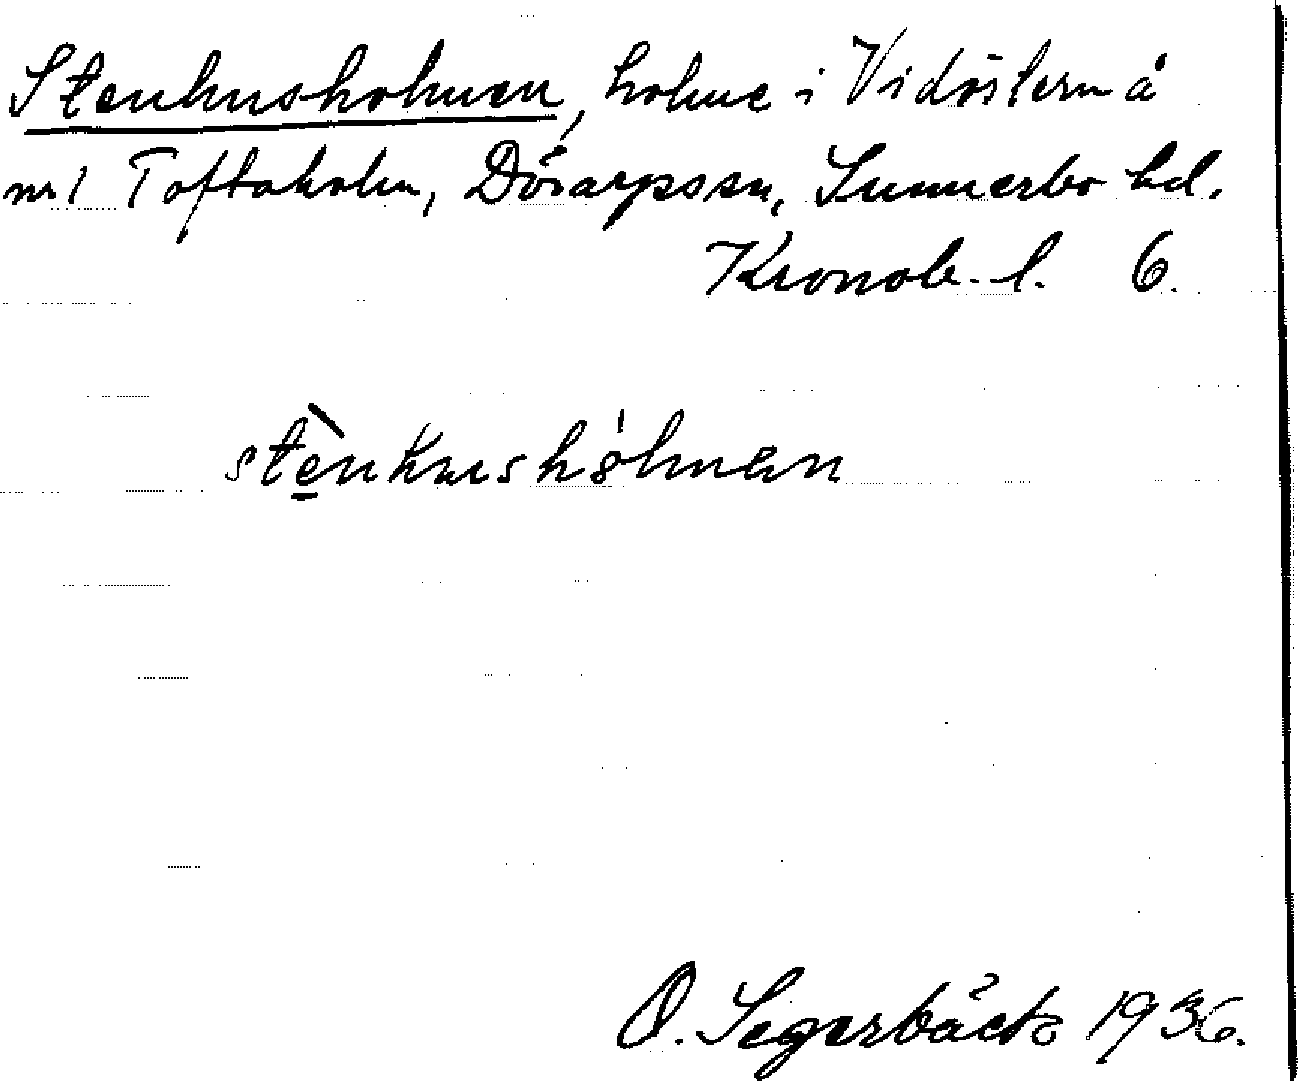 Stenhusholmen, holme i Vidöstern å
nr 1 Toftaholm, Dörarps sn, Sunnerbo hd.
Kronob. l. 6.
stènhushólmen
O. Segerbäck 1936.